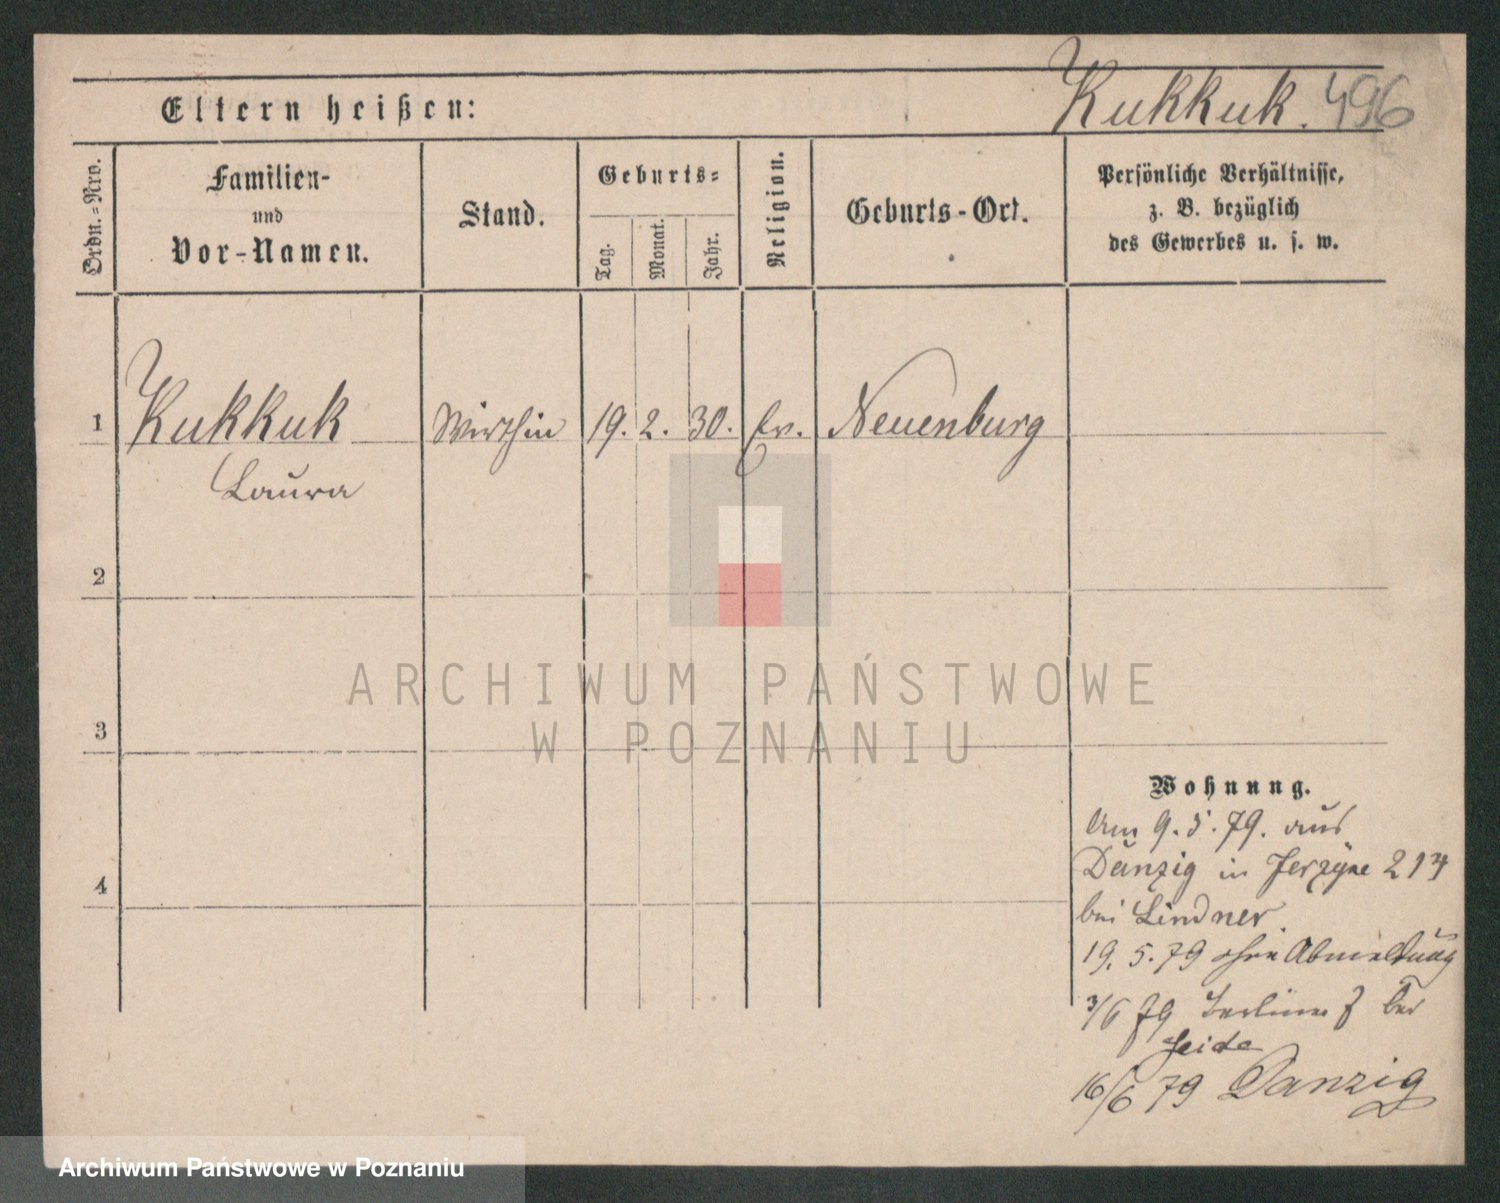 Eltern heißen:
Kukkuk. 496
Ordn.=Nro.
Familien-
und
Vor-Namen.
Stand.
Geburts=
Tag.
Monat.
Jahr.
Religion.
Geburts-Ort.
Persönliche Verhältnisse,
z. B. bezüglich
des Gewerbes u. s. w.
1 Kukkuk Wirthin 19. 2. 30. Ev. Neuenburg
Laura
2
3
4
ARCHIWUM PAŃSTWOWE
W POZNANIU
Wohnung.
Am 9. 5. 79. aus
Danzig in Jerzyce 214
bei Lindner.
19. 5. 79 ohne Abmeldung
3/6 79 Berliner 7 bei
16/6 79 Danzig
Archiwum Państwowe w Poznaniu